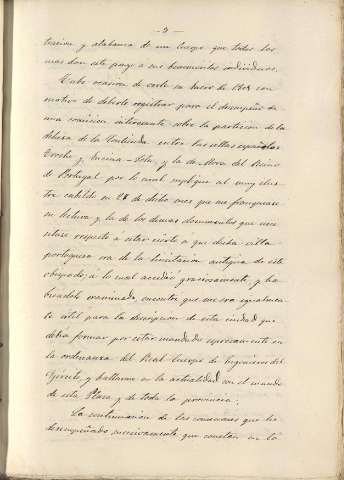 - 5 -
tración y alabanza de un Cuerpo que todos los
mas dan este pago a sus beneméritos individuos.
Hubo ocasion de verlo en Enero de 1803 con
motivo de deberlo registrar para el desempeño de
una comision interesante sobre la particion de la
dehesa de la Contienda entre las villas españolas
Aroche y Encina-Sola, y la de Mora del Reino
de Portugal por lo cual supliqué al muy ilus-
tre cabildo en 28 de dicho mes que me franqueara
su lectura y la de los demas documentos que nece-
sitase respecto á estar cierto a que dicha villa
portuguesa era de la limitacion antigua de este
obispado; á lo cual accedió graciosamente, y ha-
biendolo examinado, encontre que me era igualmen-
te útil para la descripcion de esta ciudad que
debia formar por estar mandado expresamente en
la ordenanza del Real Cuerpo de Ingenieros del
Ejército, y hallarme en la actualidad con el mando
de esta Plaza y de toda la provincia.
La continuacion de las comisiones que he
desempeñado sucesivamente que constan en la